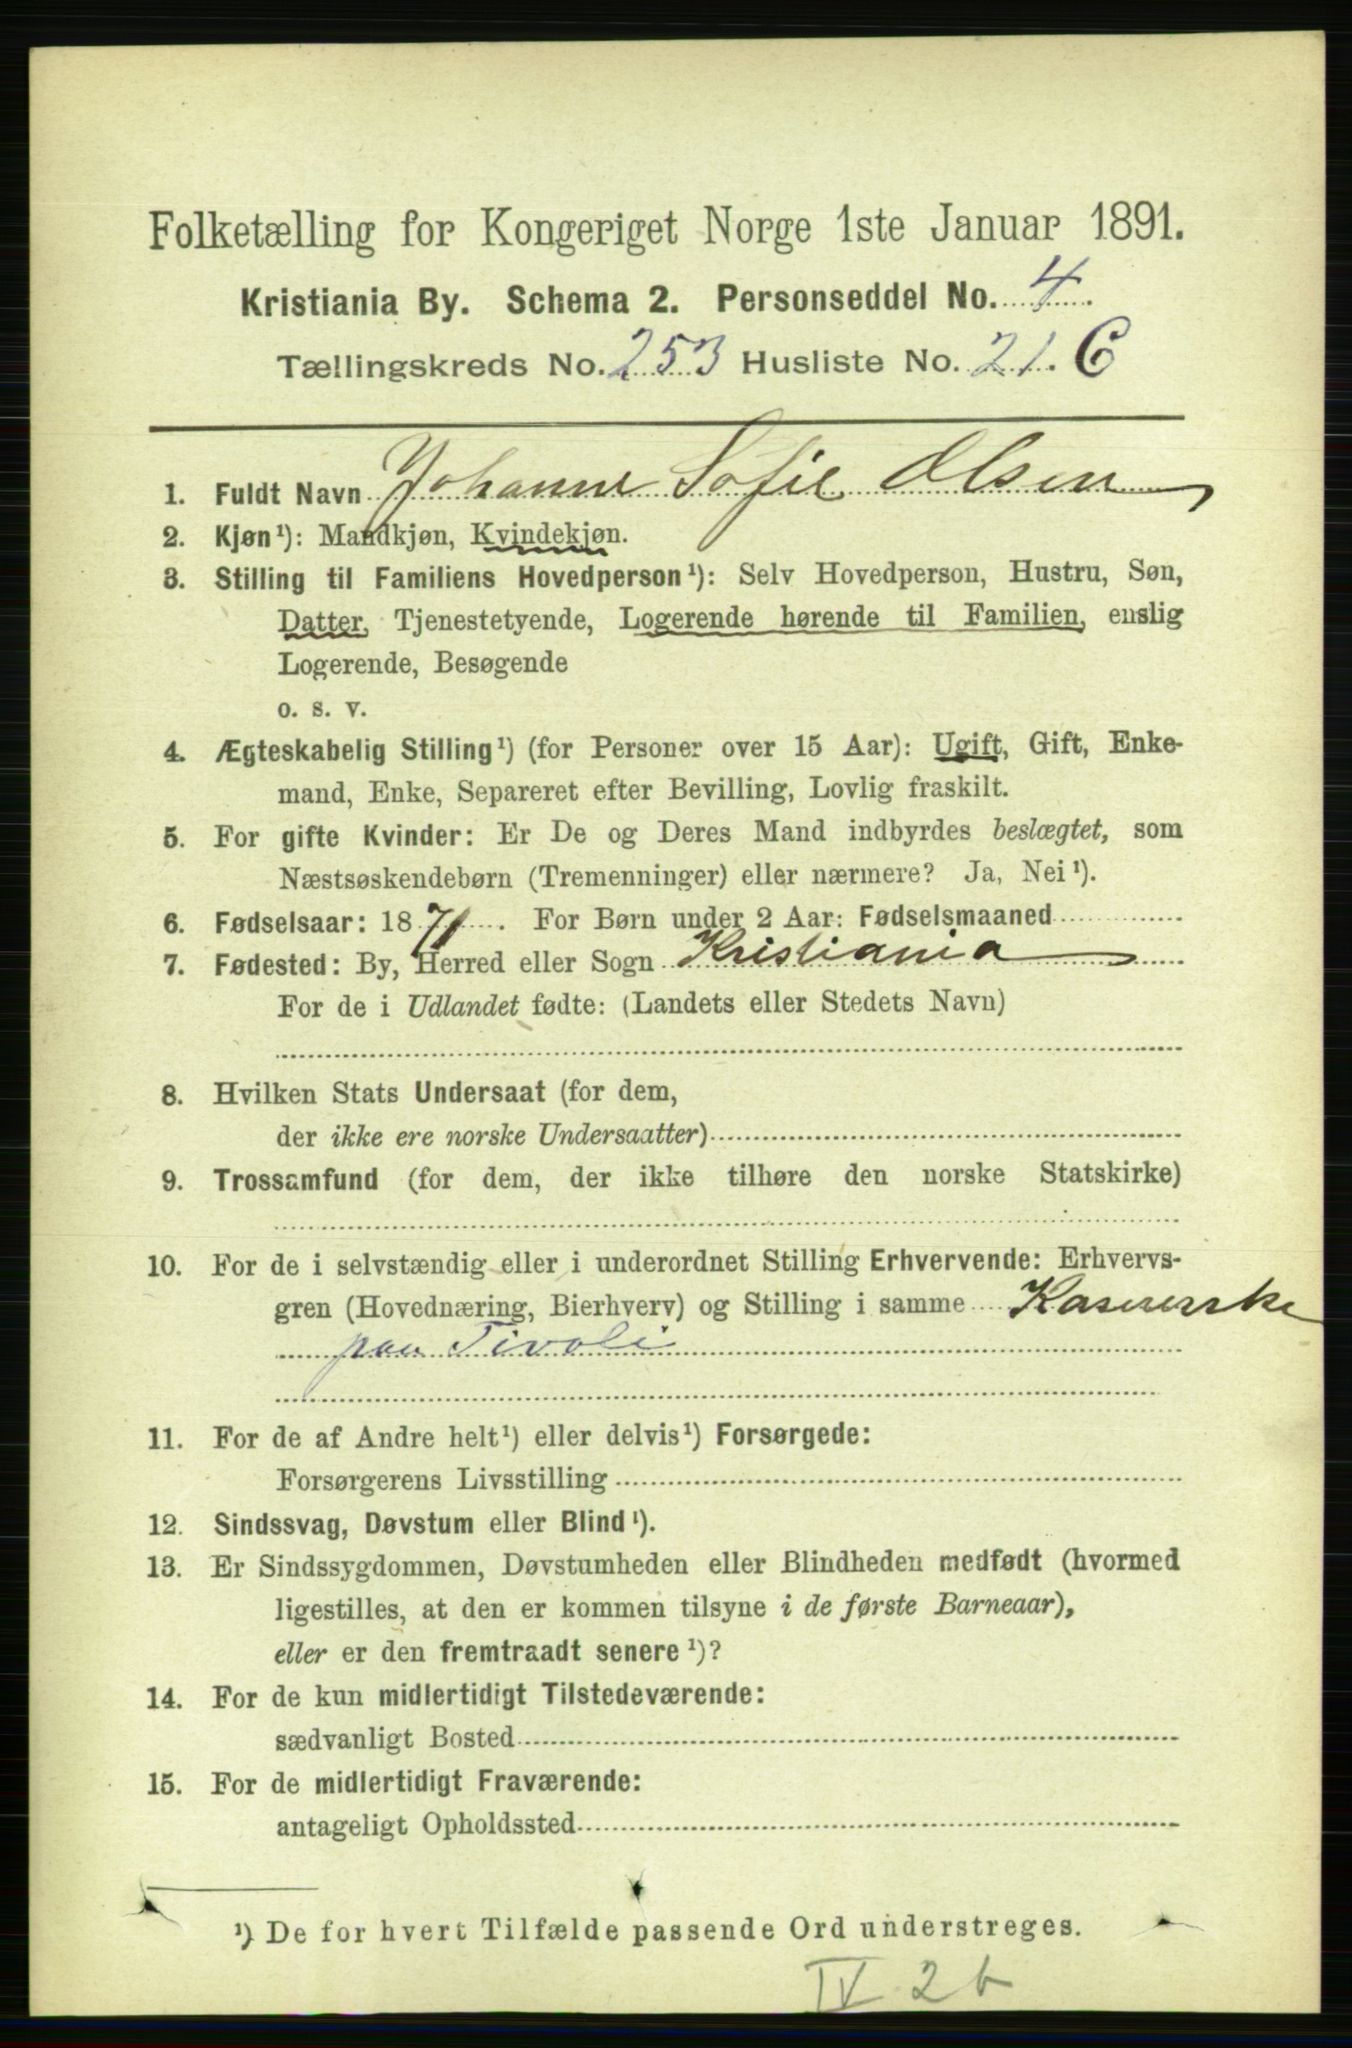 Folketælling for Kongeriget Norge 1ste Januar 1891.
Kristiania By. Schema 2. Personseddel No. 4.
Tællingskreds No. 253 Husliste No. 21. C
1. Fuldt Navn Johanne Sofie Olsen
2. Kjøn¹): Mandkjøn, Kvindekjøn.
3. Stilling til Familiens Hovedperson¹): Selv Hovedperson, Hustru, Søn,
Datter, Tjenestetyende, Logerende hørende til Familien, enslig
Logerende, Besøgende
o. s. v.
4. Ægteskabelig Stilling¹) (for Personer over 15 Aar): Ugift, Gift, Enke-
mand, Enke, Separeret efter Bevilling, Lovlig fraskilt.
5. For gifte Kvinder: Er De og Deres Mand indbyrdes beslægtet, som
Næstsøskendebørn (Tremenninger) eller nærmere? Ja, Nei¹).
6. Fødselsaar: 1871. For Børn under 2 Aar: Fødselsmaaned
7. Fødested: By, Herred eller Sogn Kristiania
For de i Udlandet fødte: (Landets eller Stedets Navn)
8. Hvilken Stats Undersaat (for dem,
der ikke ere norske Undersaatter)
9. Trossamfund (for dem, der ikke tilhøre den norske Statskirke)
10. For de i selvstændig eller i underordnet Stilling Erhvervende: Erhvervs-
gren (Hovednæring, Bierhverv) og Stilling i samme Kasererske
paa Tivoli
11. For de af Andre helt¹) eller delvis¹) Forsørgede:
Forsørgerens Livsstilling
12. Sindssvag, Døvstum eller Blind¹).
13. Er Sindssygdommen, Døvstumheden eller Blindheden medfødt (hvormed
ligestilles, at den er kommen tilsyne i de første Barneaar),
eller er den fremtraadt senere¹)?
14. For de kun midlertidigt Tilstedeværende:
sædvanligt Bosted
15. For de midlertidigt Fraværende:
antageligt Opholdssted
¹) De for hvert Tilfælde passende Ord understreges.
IV 2b